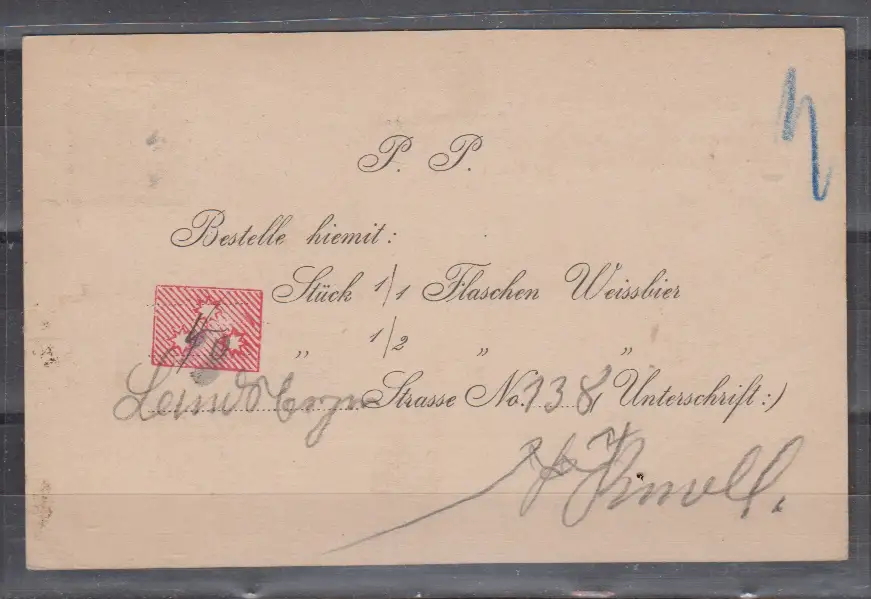 P. P.
Bestelle hiemit:
Stück 1/1 Flaschen Weissbier
„ 1/2 „ „
Strasse No. 138 (Unterschrift:)